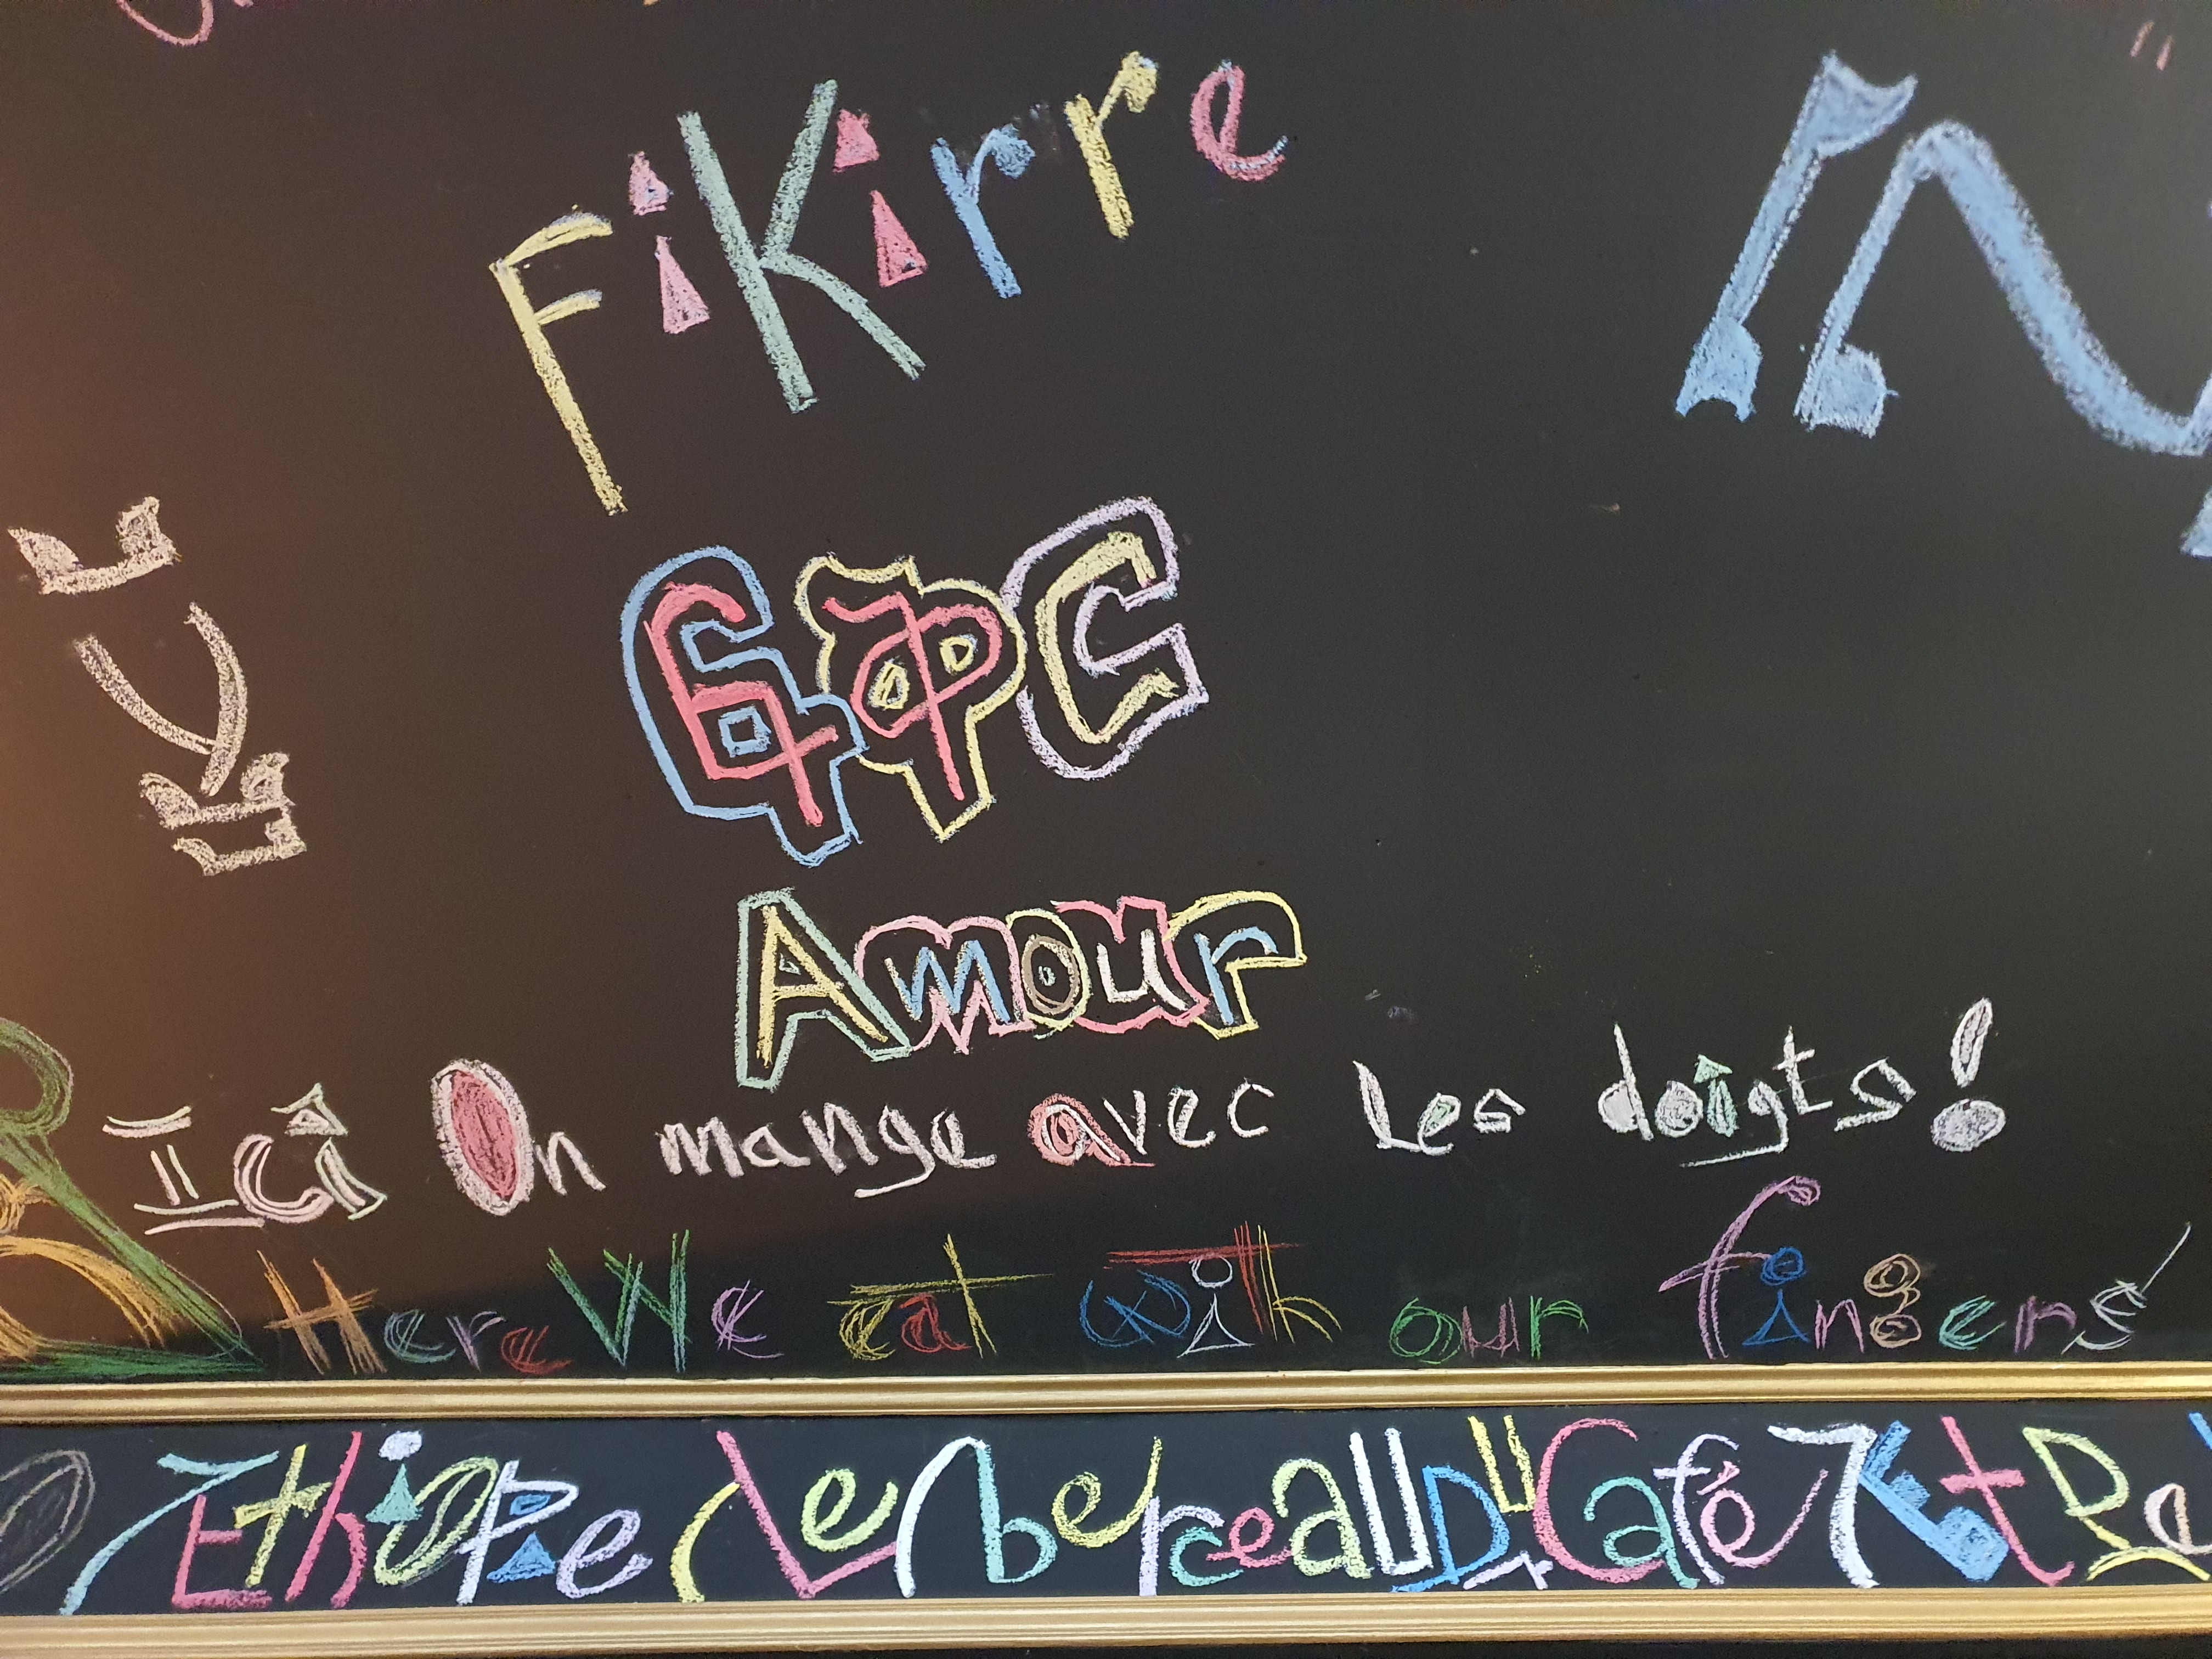 FiKirre
ፍቅር
Amour
Ici On mange avec Les doigts!
Here We eat with our fingers
Ethiopie Le berceau Du Café Et De